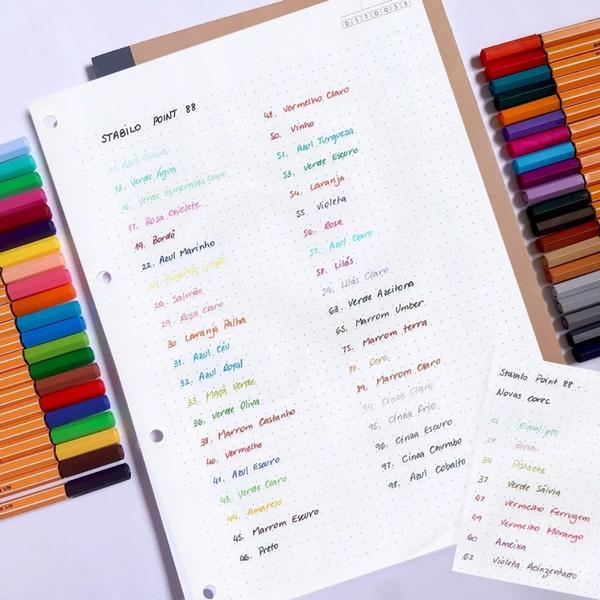 DSTQQSS
STABILO POINT 88
11. Azul Glacial
13. Verde Água
16. Verde Esmeralda Claro
17. Rosa Chiclete
19. Bordô
22. Azul Marinho
24. Amarelo Limão
26. Salmão
29. Rosa Claro
30. Laranja Palha
31. Azul Céu
32. Azul Royal
33. Maçã Verde
36. Verde Oliva
38. Marrom Castanho
40. Vermelho
41. Azul Escuro
43. Verde Claro
44. Amarelo
45. Marrom Escuro
46. Preto
48. Vermelho Claro
50. Vinho
51. Azul Turquesa
53. Verde Escuro
54. Laranja
55. Violeta
56. Rosa
57. Azul Claro
58. Lilás
59. Lilás Claro
63. Verde Azeitona
65. Marrom Umber
75. Marrom terra
88. Ocre
89. Marrom Claro
94. Cinza Claro
95. Cinza Frio
96. Cinza Escuro
97. Cinza Chumbo
98. Azul Cobalto
Stabilo Point 88
Novas cores
Eucalipto
28 Blush
34 Pistache
37 Verde Sálvia
47 Vermelho Ferrugem
49 Vermelho Morango
60 Ameixa
62 Violeta Acinzentado